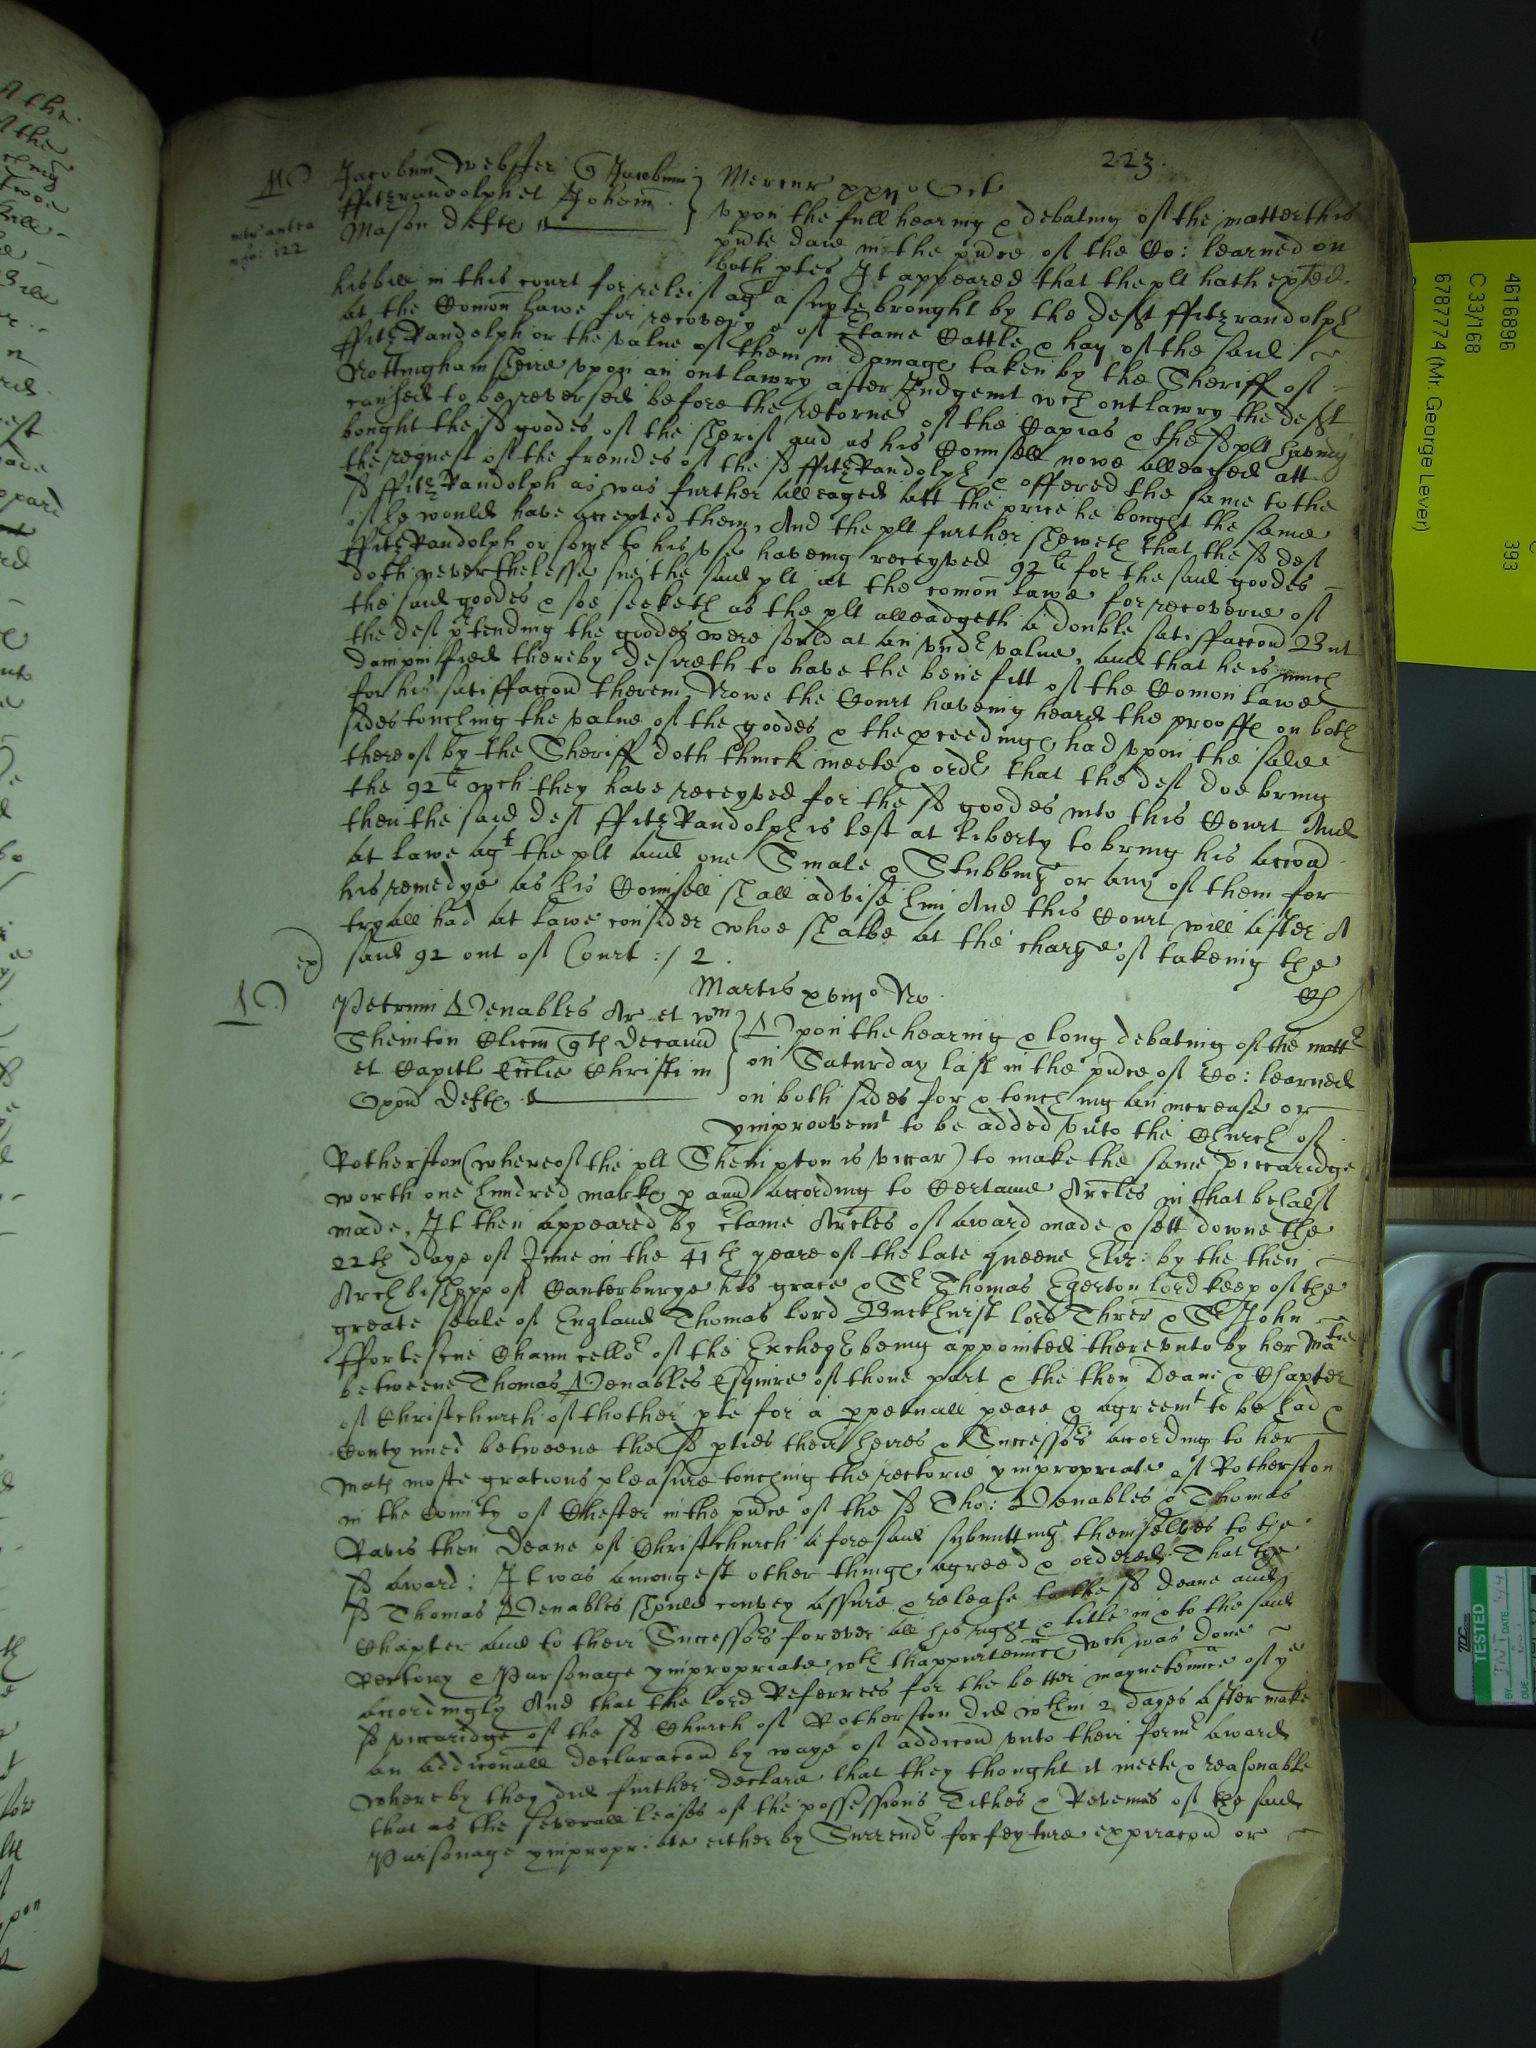 223.
W
Jacobum Webster q Jacobum
ffitzrandolph et Johem
Mason defte
intr antea
fo: 122
Mercur xxijo Oct
Vpon the full hearing & debating of the matter this
pnte daie in the pnce of the Co: learned on
both ptes It appeared that the plt hath exhited
his bill in this court for releif agt a suyte brought by the deft ffitzrandolph
at the Comon Lawe for recovery of ctaine Cattle & hay of the said
ffitzRandolph or the value of them in damage taken by the Sheriff of
Nottinghamsheire vpon an outlawry after Judgemt wch outlawry the deft
caused to be reversed before the retorne of the Capias & the sd plt having
bought the sd goodes of the sherif and as his Counsell nowe alleaged att
the request of the freindes of the sd ffitzRandolph & offered the same to the
sd ffitzRandolph as was further alleaged att the price he bought the same
if he would have accepted them, And the plt further sheweth that the sd def
ffitzRandolph or some to his vse haveing receyved 92li for the said goodes
doth neverthelesse sue the said plt at the comon lawe for recoverie of
the said goodes & soe seeketh as the plt alleadgeth a double satisfaccon But
the def ptending the goodes were sould at an vnde value, and that he is much
dampnified thereby desireth to have the benefitt of the Comon Lawe
for his satisfaccon therein, Nowe the Court haveing heard the prooffe on both
sides touching the value of the goodes & the pceedinge had vpon the sale
thereof by the Sheriff doth thinck meete & orde that the def doe bring
the 92li wch they have receyved for the sd goodes into this Court And
then the said def ffitzRandolph is left at liberty to bring his accon
at lawe agt the plt and one Smale & Stubbing or any of them for
his remedye as his Counsell shall advise him And this Court will after A
tryall had at lawe consider whoe shalbe at the charge of takeing the
said 92 out of Court :/ 2.
ex)
V
Martis xviijo No.
Petrum Venables Ar et wm
Sheinton Clicm qth Decanu
et Capitl Ecclie Christi in
Oxon defte
Vpon the hearing & long debating of the matte
on Saturday last in the pnce of Co: learned
on both sides for & touching an increase or
ymproovemt to be added vnto the Church of
Rotherston (whereof the plt Sheinpton is viccar) to make the same viccaridge
worth one hundred marke p ann according to Certaine Arcles in that behalf
made, It then appeared by ctaine Arcles of award made & sett downe the
22th daye of June in the 41th yeare of the late queene Eliz: by the then
Archbishopp of Canterburye his grace & Sr Thomas Egerton lord keep of the
greate seale of England Thomas lord Buckhurst lord Threr & Sr John
ffortescue Chauncellor of the Excheqe being appointed therevnto by her Matie
betweene Thomas Venables Esquire of thone part & the then Deane & Chapter
of Christchurch of thother pte for a ppetuall peace & agreemt to be had &
Contynued betweene the sd pties their heires & Successors according to her
Mats moste gratious pleasure touching the rectorie ympropriate of Rotherston
in the County of Chester in the pnce of the sd Tho: Venables & Thomas
Ravis then Deane of Christchurch aforesaid submitting themselves to the
sd award; It was amongest other thinge agreed & ordered That the
sd Thomas Venables should convey assure & release to the sd Deane and
Chapter and to their Successors forever all his right & title in & to the said
Rectory & Parsonage ympropriate wth thappurtennce wch was done
accordingly And that the lord Referrees for the better mayntennce of ye
sd viccaridge of the sd Church of Rotherston did wthin 2 dayes after make
an addiconall declaracon by waye of addicon vnto their forme award
whereby they did further declare that they thought it meete & reasonable
that as the severall leases of the possessions Tithes & Revenues of the said
Parsonage ympropriate either by Surrende forfeyture expiracon or
46168996
C 33/168
6787774 (Mr. George Lever)
393
TESTED
BY
DATE
DUE